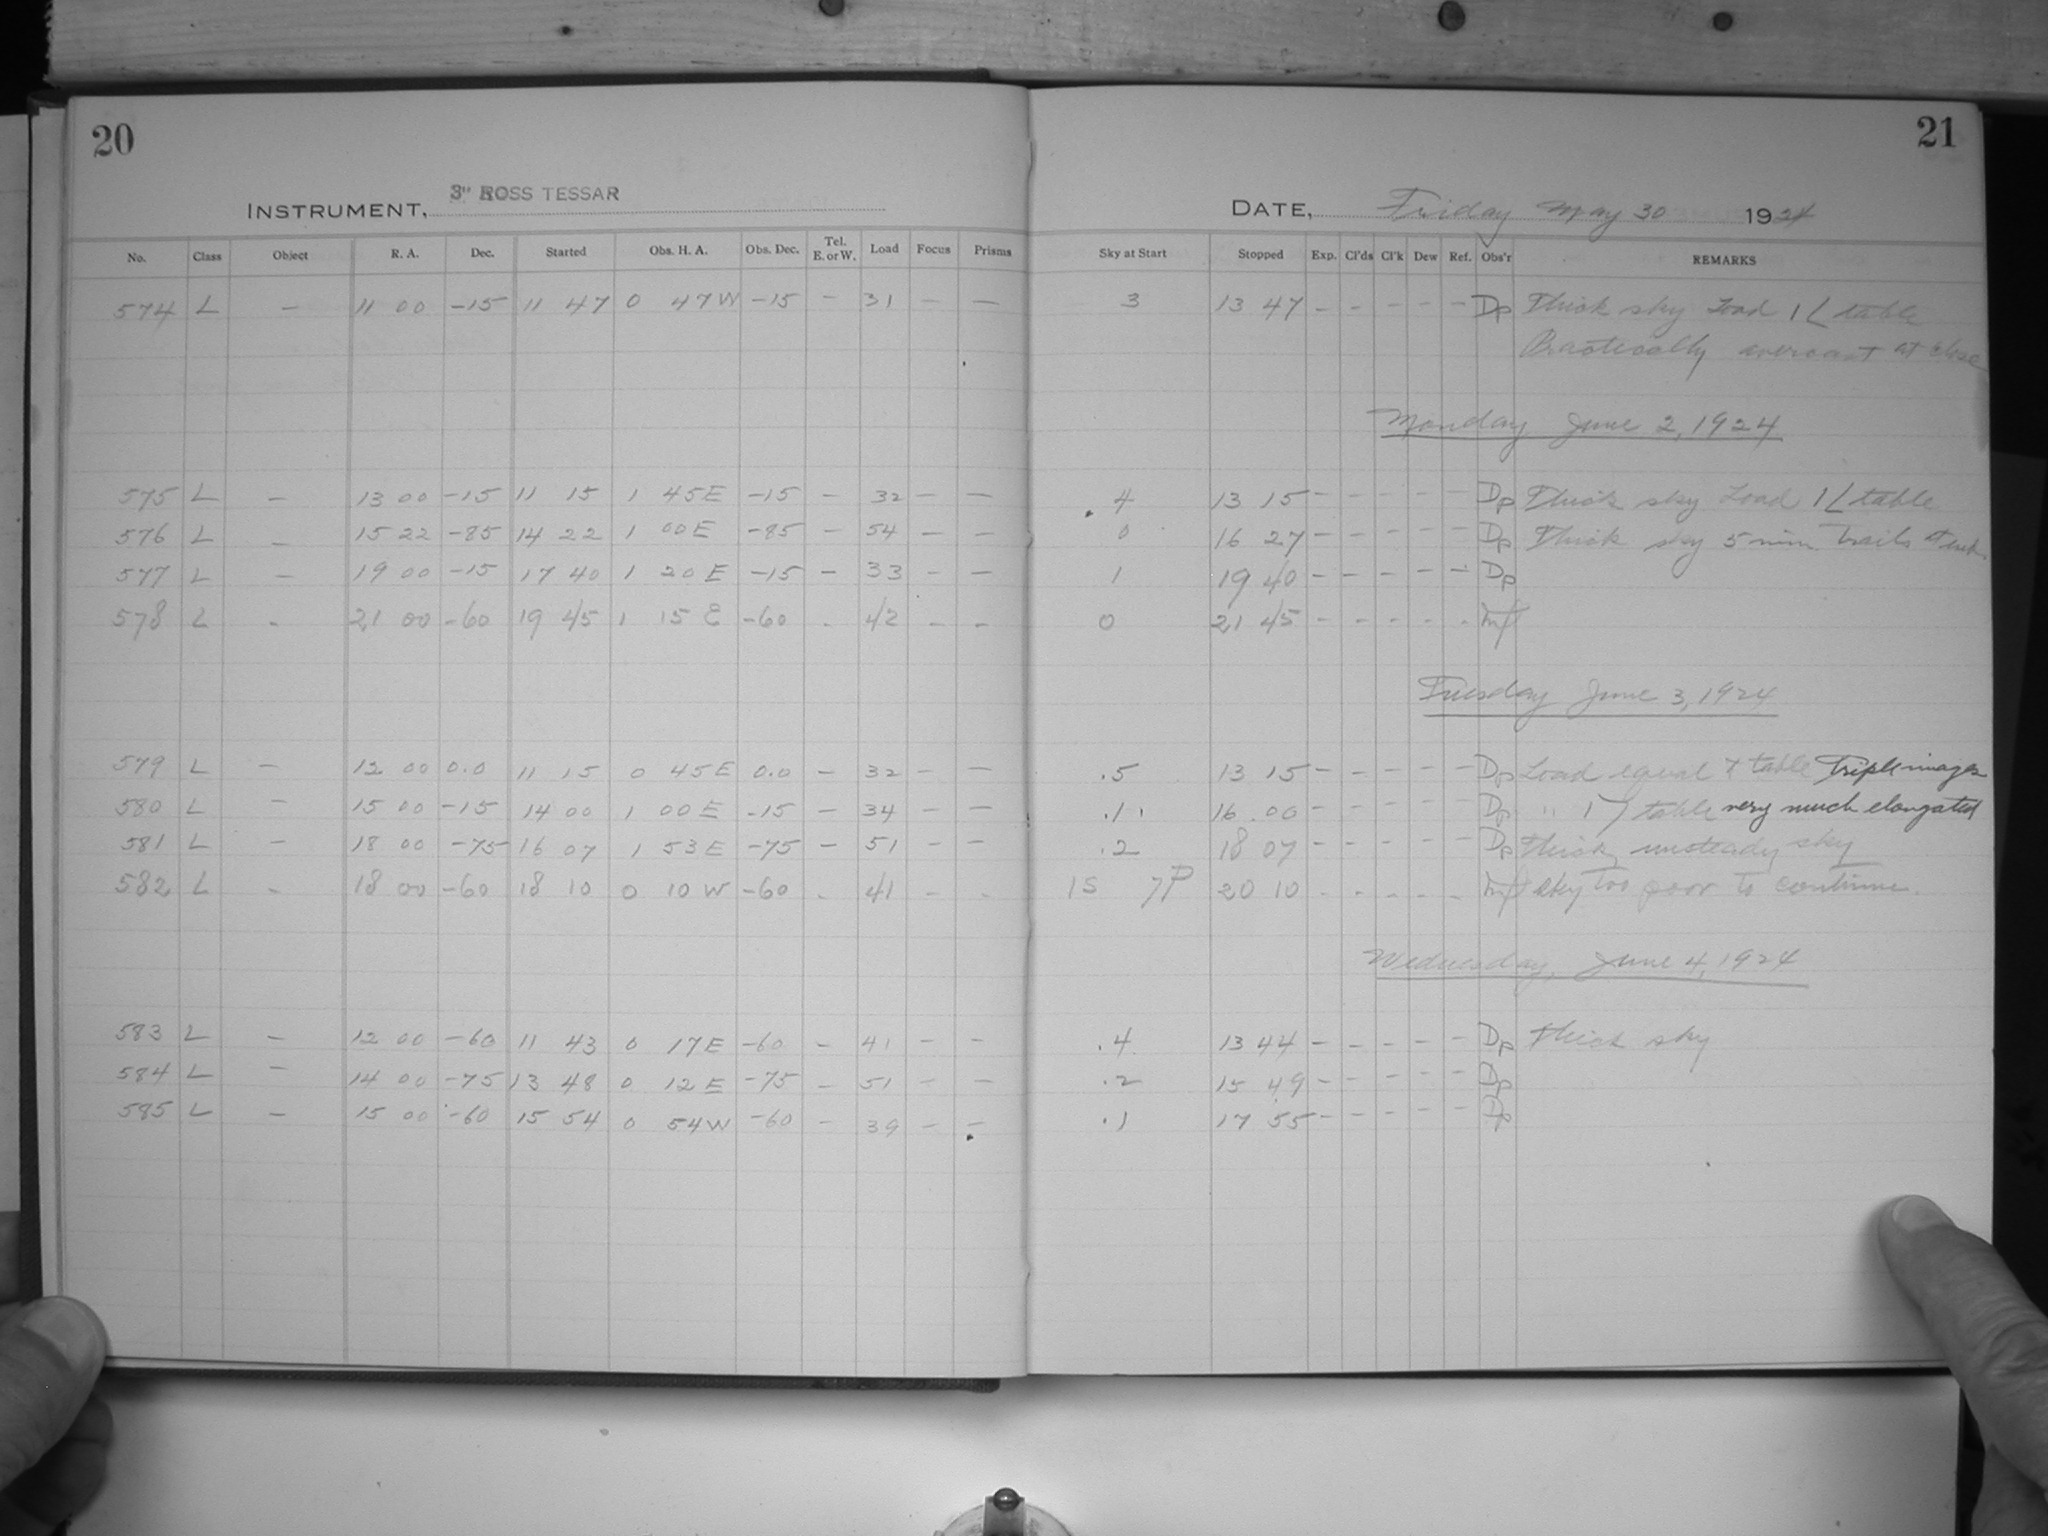 20
21
INSTRUMENT, 3" ROSS TESSAR
DATE, Friday May 30 1924
No. Class Object R. A. Dec. Started Obs. H. A. Obs. Dec. Tel. E. or W. Load Focus Prisms Sky at Start Stopped Exp. Cl'ds Cl'k Dew Ref. Obs'r REMARKS
574 L — 11 00 -15 11 47 0 47 W -15 – 31 — — 3 13 47 – – – – – Dp Thick sky Load 1 L table
Practically overcast at close
Monday June 2, 1924
575 L — 13 00 -15 11 15 1 45 E -15 – 32 – — .4 13 15 – – – – – Dp Thick sky Load 1 L table
576 L – 15 22 -85 14 22 1 00 E -85 – 54 — — 0 16 27 – – – – – Dp Thick sky 5 min. Trails at
577 L — 19 00 -15 17 40 1 20 E -15 – 33 – — 1 19 40 – – – – – Dp
578 L - 21 00 -60 19 45 1 15 E -60 . 42 – – 0 21 45 – – – – –
Tuesday June 3, 1924
579 L — 12 00 0.0 11 15 0 45 E 0.0 – 32 – — .5 13 15 – – – – – Dp Load equal table Triple images
580 L — 15 00 -15 14 00 1 00 E -15 – 34 — — .1 16 00 – – – – – Dp " 1 table very much elongated
581 L — 18 00 -75 16 07 1 53 E -75 – 51 – — .2 18 07 – – – – – Dp Thick, unsteady sky
582 L - 18 00 -60 18 10 0 10 W -60 . 41 - - 1S 7P 20 10 - - - - - sky too poor to continue.
Wednesday, June 4, 1924
583 L — 12 00 -60 11 43 0 17 E -60 – 41 – – .4 13 44 – – – – – Dp Thick sky
584 L — 14 00 -75 13 48 0 12 E -75 – 51 – — .2 15 49 – – – – – Dp
585 L — 15 00 -60 15 54 0 54 W -60 – 39 – – .1 17 55 – – – – – Dp